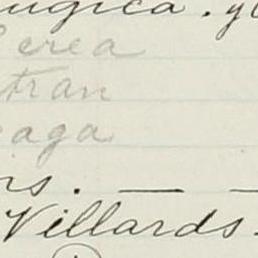 ugica. y
erea
tran
aga
rs. —
Villards.